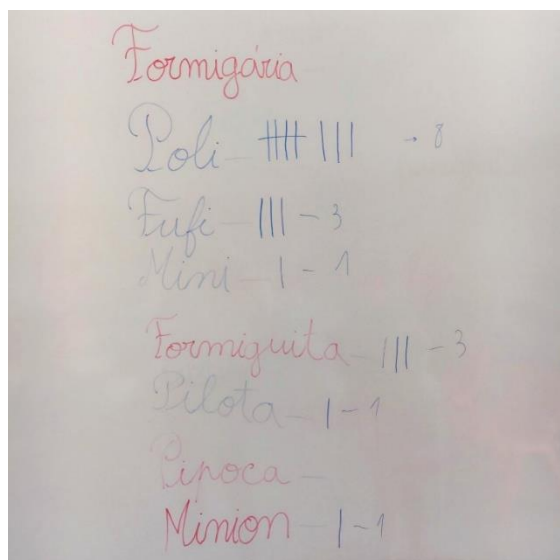 Formigária
Poli - |||| ||| → 8
Fufi - ||| - 3
Mini - | - 1
Formiguita - ||| - 3
Pilota - | - 1
Pipoca -
Minion - | - 1